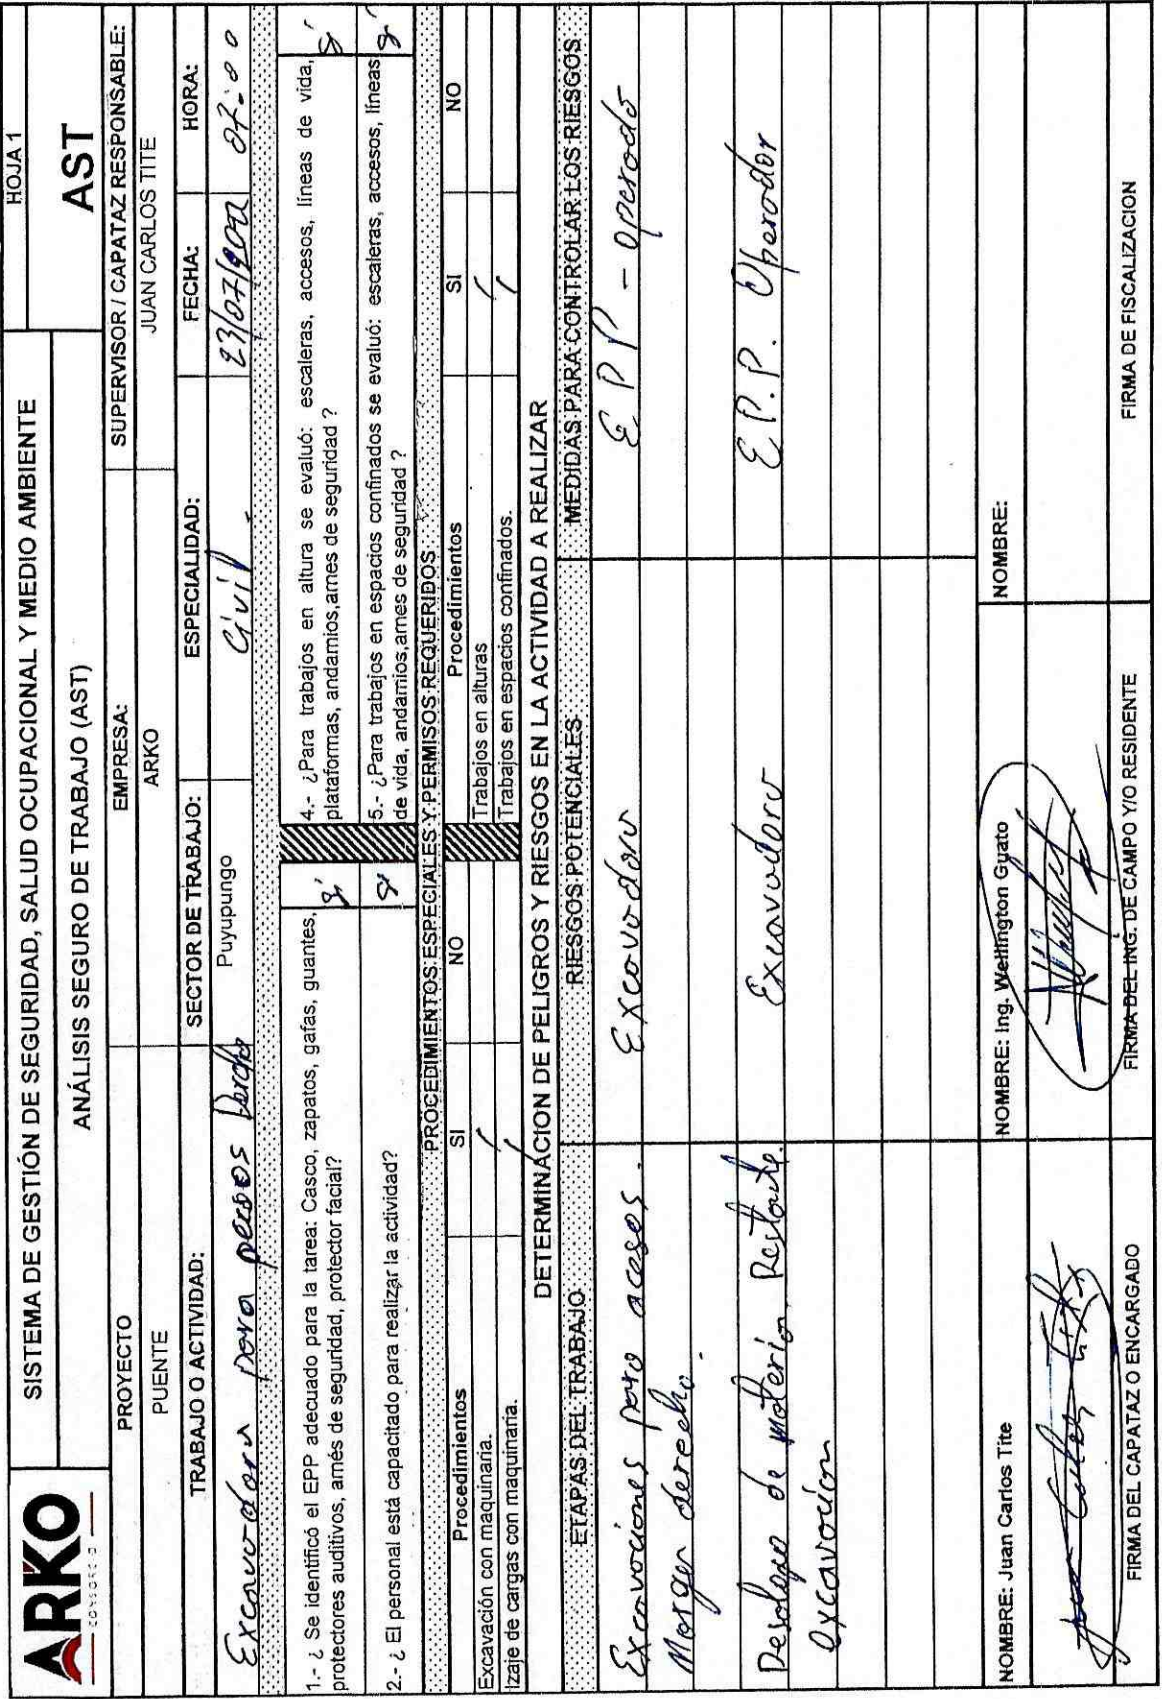 ARKO
CONSORCIO
SISTEMA DE GESTIÓN DE SEGURIDAD, SALUD OCUPACIONAL Y MEDIO AMBIENTE
HOJA 1
ANÁLISIS SEGURO DE TRABAJO (AST)
AST
PROYECTO
EMPRESA:
SUPERVISOR / CAPATAZ RESPONSABLE:
PUENTE
ARKO
JUAN CARLOS TITE
TRABAJO O ACTIVIDAD:
SECTOR DE TRABAJO:
ESPECIALIDAD:
FECHA:
HORA:
Excavadora para
Puyupungo
Civil.
07:00
1.- ¿ Se identificó el EPP adecuado para la tarea: Casco, zapatos, gafas, guantes,
protectores auditivos, arnés de seguridad, protector facial?
si
4.- ¿Para trabajos en altura se evaluó: escaleras, accesos, líneas de vida,
plataformas, andamios,arnes de seguridad ?
si
2.- ¿ El personal está capacitado para realizar la actividad?
si
5.- ¿Para trabajos en espacios confinados se evaluó: escaleras, accesos, líneas
de vida, andamios,arnes de seguridad ?
si
PROCEDIMIENTOS ESPECIALES Y PERMISOS REQUERIDOS
Procedimientos
SI
NO
Procedimientos
SI
NO
Excavación con maquinaria.
Trabajos en alturas
Izaje de cargas con maquinaria.
Trabajos en espacios confinados.
DETERMINACION DE PELIGROS Y RIESGOS EN LA ACTIVIDAD A REALIZAR
ETAPAS DEL TRABAJO
RIESGOS POTENCIALES
MEDIDAS PARA CONTROLAR LOS RIESGOS
Excavaciones para acesos.
Excavadora
EPP - operado
Margen derecho.
Desalojo de materia Restante.
Excavadora
E.P.P. Operador
excavacion
NOMBRE: Juan Carlos Tite
NOMBRE: Ing. Wellington Guato
NOMBRE:
FIRMA DEL CAPATAZ O ENCARGADO
FIRMA DEL ING. DE CAMPO Y/O RESIDENTE
FIRMA DE FISCALIZACION